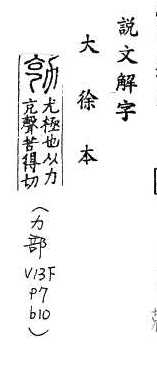 説文解字
大徐本
勀
尤極也从力
克聲苦得切
(力部
V13F
P7
b10)